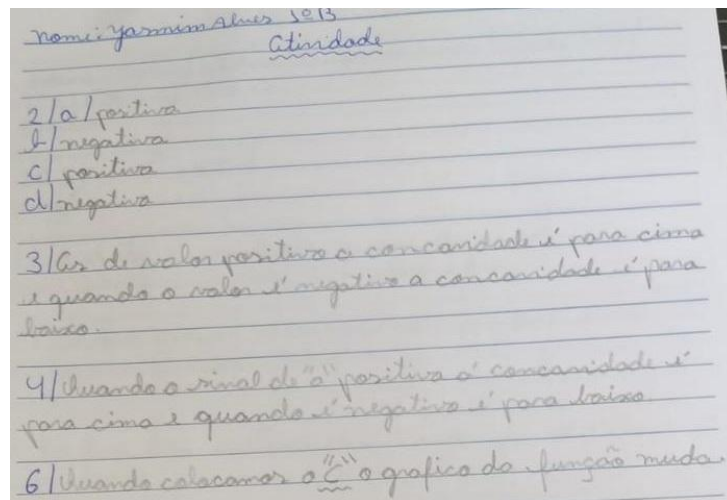 nome: Yasmim Alves 1º B
Atividade
2/a/positiva
b/negativa
c/positiva
d/negativa
3/As de valor positivo a concanvidade é para cima
e quando o valor é negativo a concanvidade é para
baixo.
4/Quando o sinal de "a" positiva a concanvidade é
para cima e quando é negativo é para baixo.
6/Quando colocamos o "C" o grafico da função muda.